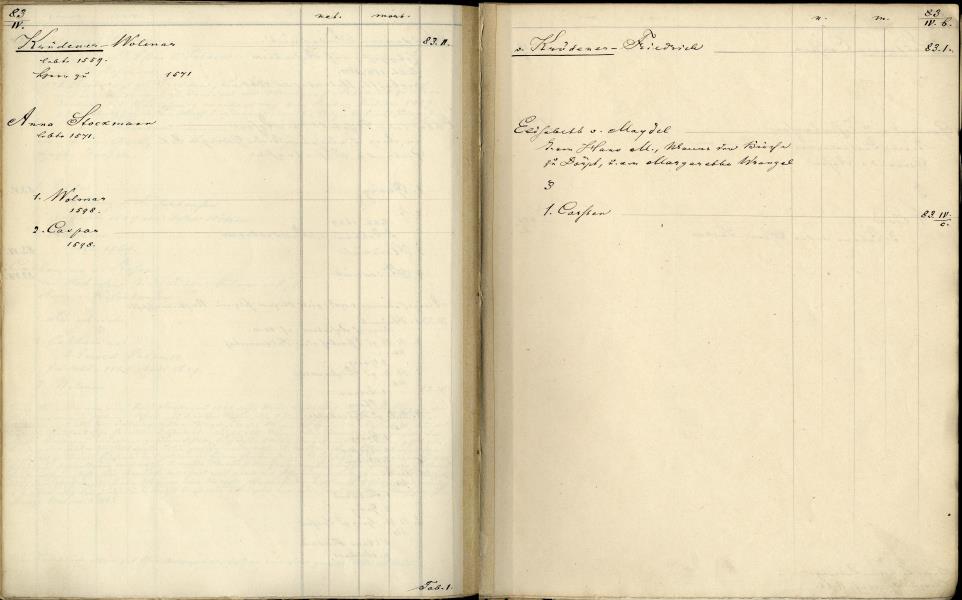 83
IV.
nat.
mort.
Krüdener-Wolmar
83.II.
lebte 1559.
Herr zu 1571
Anna Stockmann
lebte 1571.
1. Wolmar
1598.
2. Caspar
1598.
Tab. 1.
n.
m.
83
IV. b.
v. Krüdener-Friedrich
83.I.
Elisabeth v. Maydel
Hans M.,
zu Dörpt, Margaretha Wrangel
3
1. Carsten
83 IV.
c.